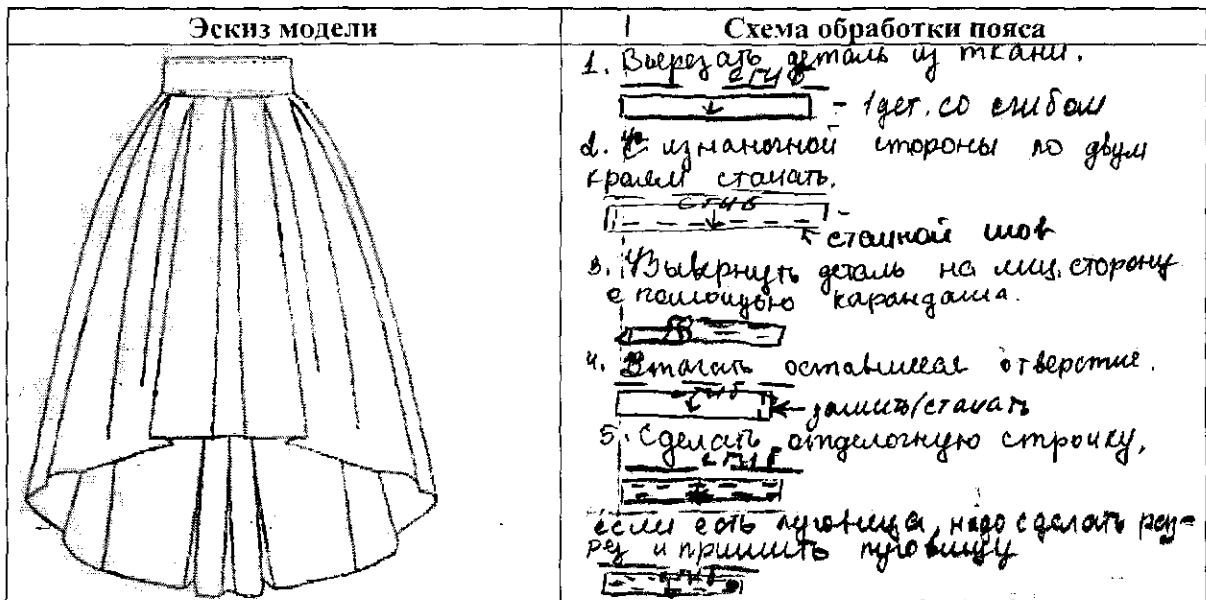 Эскиз модели
Схема обработки пояса
1. Вырезать деталь из ткани.
сгиб
- 1 дет. со сгибом
2. С изнаночной стороны по двум
краям стачать.
сгиб
стачной шов
3. Вывернуть деталь на лиц. сторону
с помощью карандаша.
4. Втачать оставшееся отверстие.
сгиб
зашить/стачать
5. Сделать отделочную строчку,
сгиб
если есть пуговица, надо сделать раз-
рез и пришить пуговицу
сгиб